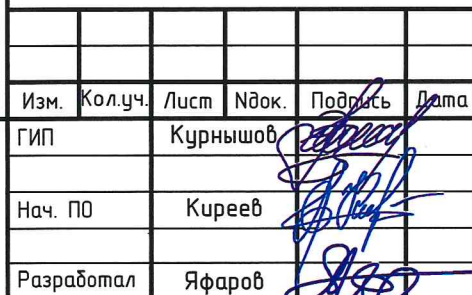 Изм. Кол.уч. Лист Nдок. Подпись Дата
ГИП Курнышов
Нач. ПО Киреев
Разработал Яфаров